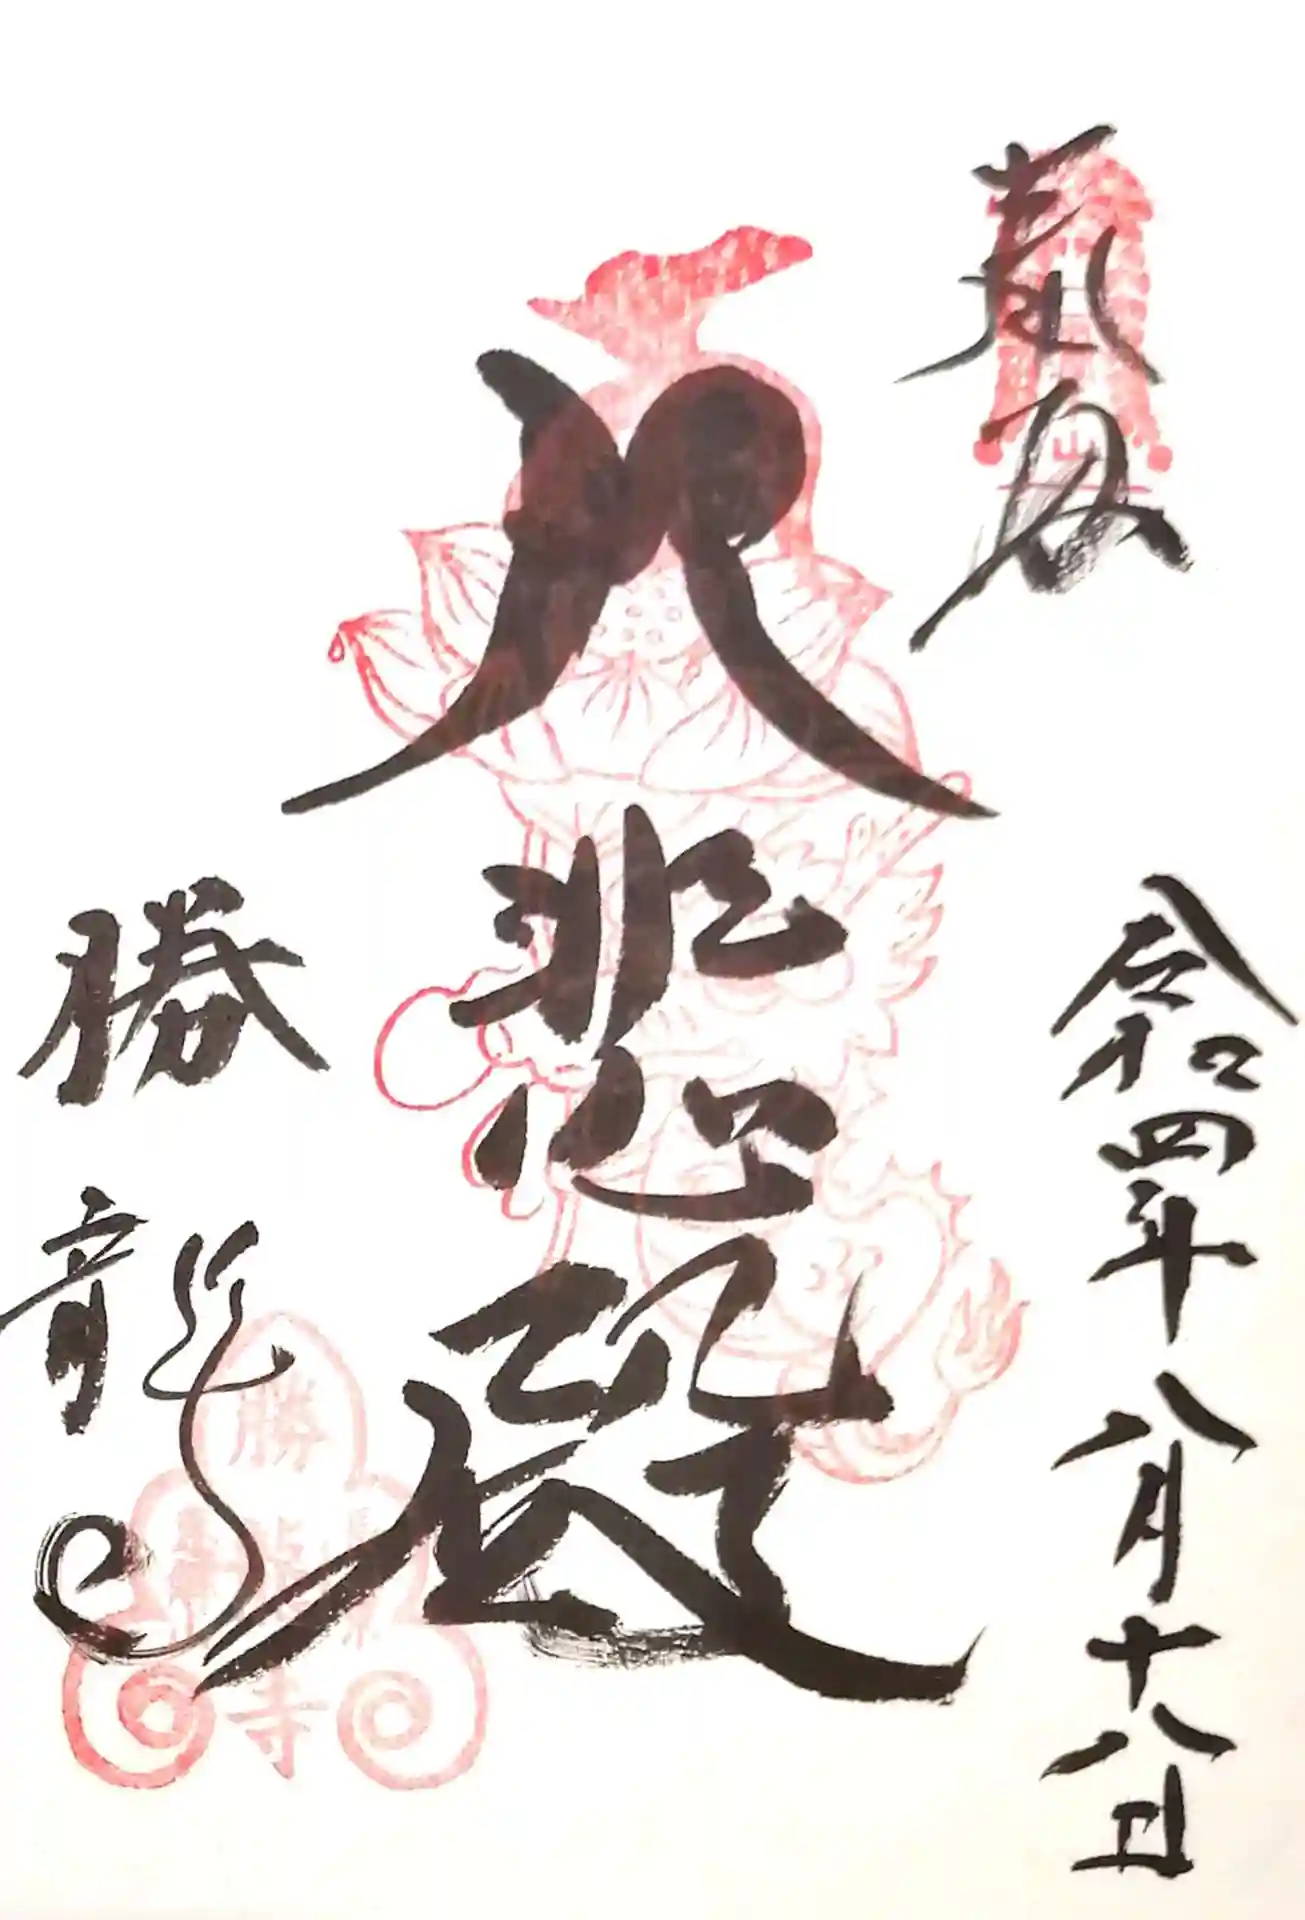 令和四年八月十八日
大悲殿
勝龍
勝龍寺